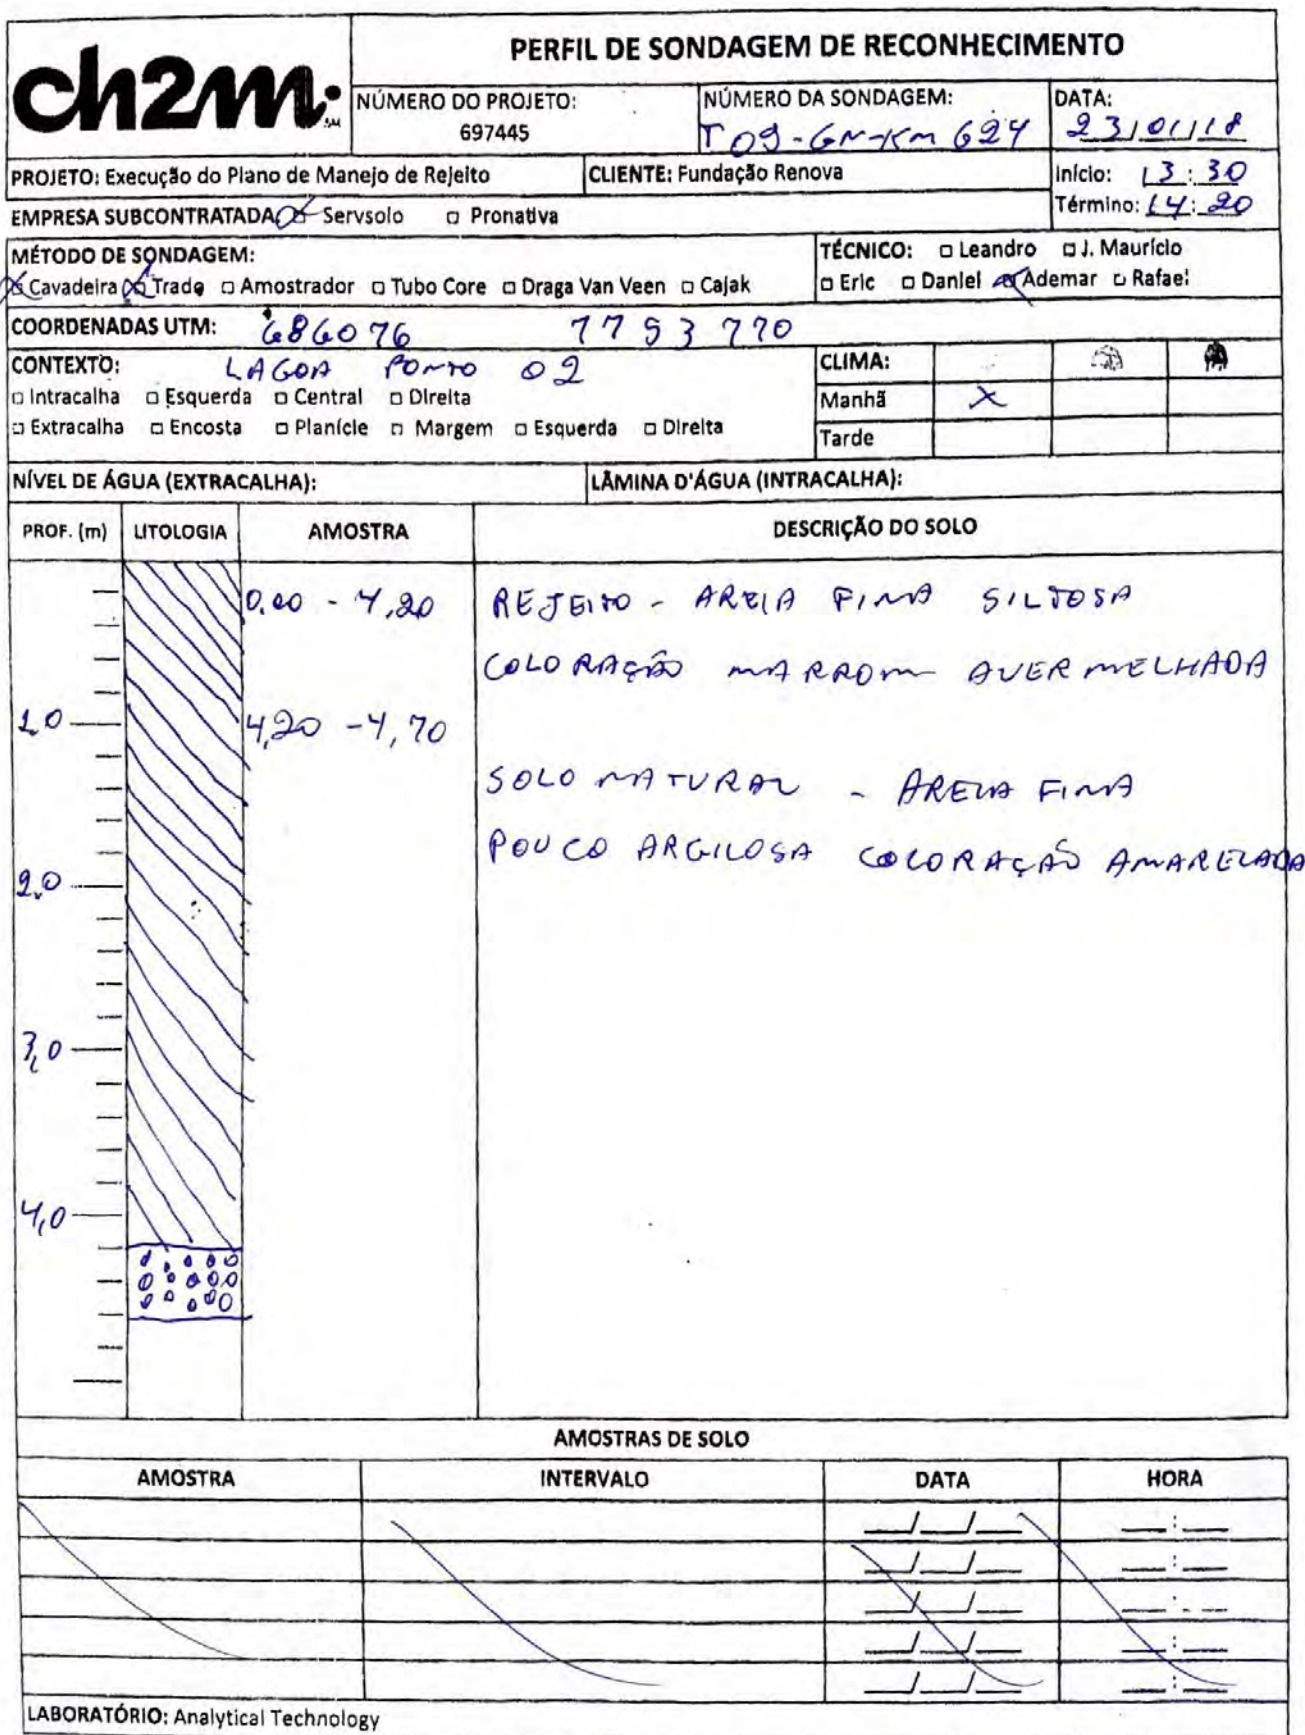 ch2m
PERFIL DE SONDAGEM DE RECONHECIMENTO
NÚMERO DO PROJETO:
697445
NÚMERO DA SONDAGEM:
T09-GN-Km 624
DATA:
23/01/18
PROJETO: Execução do Plano de Manejo de Rejeito
CLIENTE: Fundação Renova
Início: 13:30
Término: 14:20
EMPRESA SUBCONTRATADA Servsolo □ Pronativa
MÉTODO DE SONDAGEM:
Cavadeira Trado □ Amostrador □ Tubo Core □ Draga Van Veen □ Cajak
TÉCNICO: □ Leandro □ J. Maurício
□ Eric □ Daniel Ademar □ Rafael
COORDENADAS UTM: 686076 7793770
CONTEXTO: LAGOA PONTO 02
□ Intracalha □ Esquerda □ Central □ Direita
□ Extracalha □ Encosta □ Planície □ Margem □ Esquerda □ Direita
CLIMA:
Manhã X
Tarde
NÍVEL DE ÁGUA (EXTRACALHA):
LÂMINA D'ÁGUA (INTRACALHA):
PROF. (m) LITOLOGIA AMOSTRA DESCRIÇÃO DO SOLO
0,00 - 4,20 REJEITO - AREIA FINA SILTOSA
COLORAÇÃO MARROM AVERMELHADA
1,0 4,20 - 4,70
SOLO NATURAL - AREIA FINA
POUCO ARGILOSA COLORAÇÃO AMARELADA
2,0
3,0
4,0
AMOSTRAS DE SOLO
AMOSTRA INTERVALO DATA HORA
__/__/__ __:__
__/__/__ __:__
__/__/__ __:__
__/__/__ __:__
__/__/__ __:__
LABORATÓRIO: Analytical Technology